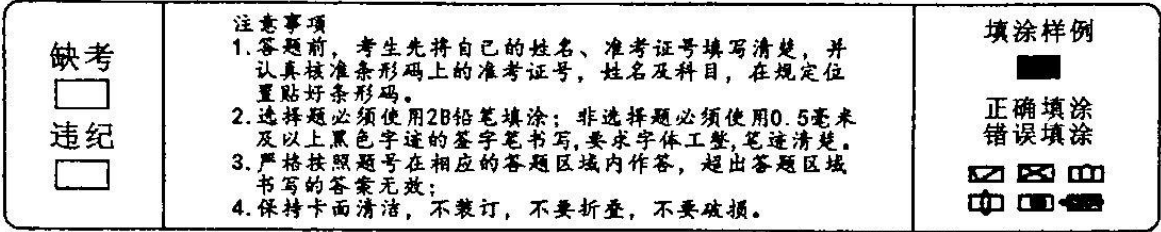 缺考
违纪
注意事项
1.答题前，考生先将自己的姓名、准考证号填写清楚，并
认真核准条形码上的准考证号，姓名及科目，在规定位
置贴好条形码。
2.选择题必须使用2B铅笔填涂；非选择题必须使用0.5毫米
及以上黑色字迹的签字笔书写,要求字体工整,笔迹清楚。
3.严格按照题号在相应的答题区域内作答，超出答题区域
书写的答案无效；
4.保持卡面清洁，不装订，不要折叠，不要破损。
填涂样例
正确填涂
错误填涂